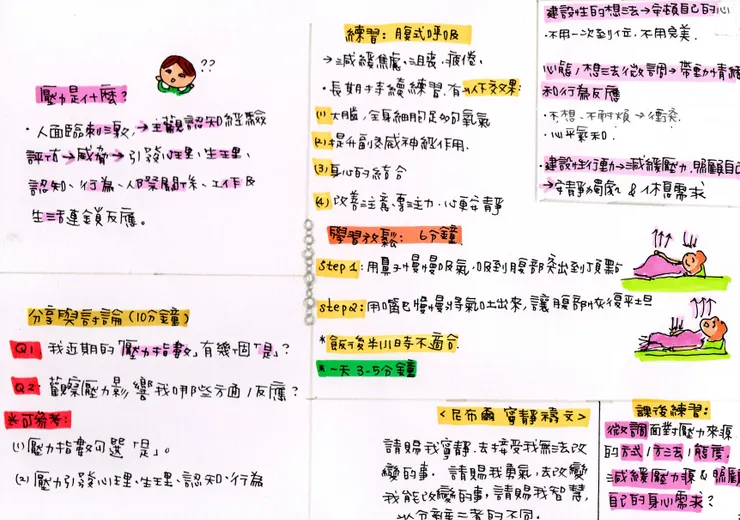 ??
壓力是什麼?
·人面臨刺激,→主觀認知經驗
評估→威脅→引發心理、生理、
認知、行為、人際關係、工作及
生活連鎖反應。
分享與討論(10分鐘)
Q1. 我近期的「壓力指數」有幾個「是」?
Q2. 觀察壓力影響我哪些方面/反應?
*可參考:
(1)壓力指數勾選「是」。
(2)壓力引發心理、生理、認知、行為
練習:腹式呼吸
→減緩焦慮、沮喪、疲倦、
·長期持續練習,有以下效果:
(1)大腦,全身細胞足夠氧氣
(2)提升副交感神經作用.
(3)身心的結合
(4)改善注意、專注力.心更安靜
學習放鬆: 6分鐘.
Step1:用鼻子慢慢吸氣,吸到腹部突出到頂點
Step2:用嘴巴慢慢將氣吐出來,讓腹部恢復平坦
*飯後半小時不適合.
*一天3-5分鐘
建設性的想法→安頓自己的心
·不用一次到位,不用完美.
心態/想法微調→帶動情緒
和行為反應
·不想、不耐煩→衝突.
·心平氣和.
·建設性行動→減緩壓力.照顧自己
→安靜獨處&休息需求
<尼布爾 寧靜禱文>
請賜我寧靜,去接受我無法改
變的事. 請賜我勇氣,去改變
我能改變的事,請賜我智慧,
以分辨二者的不同.
課後練習:
微調面對壓力來源
的方式/方法/態度.
減緩壓力源&照顧
自己的身心需求?